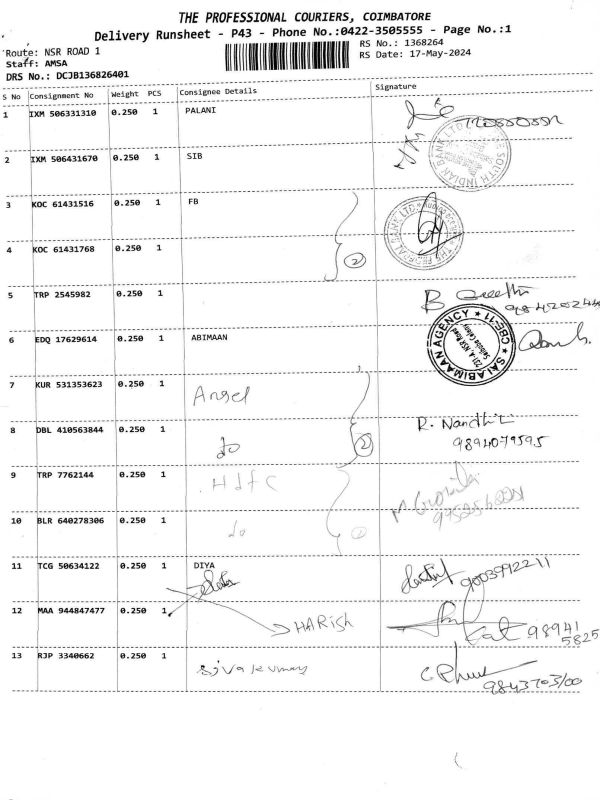 THE PROFESSIONAL COURIERS, COIMBATORE
Delivery Runsheet - P43 - Phone No.:0422-3505555 - Page No.:1
Route: NSR ROAD 1
RS No.: 1368264
Staff: AMSA
RS Date: 17-May-2024
DRS No.: DCJB136826401
S No Consignment No Weight PCS Consignee Details Signature
1 IXM 506331310 0.250 1 PALANI
2 IXM 506431670 0.250 1 SIB
3 KOC 61431516 0.250 1 FB
4 KOC 61431768 0.250 1
2
5 TRP 2545982 0.250 1
6 EDQ 17629614 0.250 1 ABIMAAN
SALABIMAAN AGENCY ★ CBE-11 ★
NSR Road
Saibaba Colony
7 KUR 531353623 0.250 1 Angel
8 DBL 410563844 0.250 1 do 2 R. Nandhi
9894079595
9 TRP 7762144 0.250 1 Hdfc
10 BLR 640278306 0.250 1 do
11 TCG 50634122 0.250 1 DIYA 9003992211
12 MAA 944847477 0.250 1 HARish 98941
5825
13 RJP 3340662 0.250 1 sivakumar
9843703100